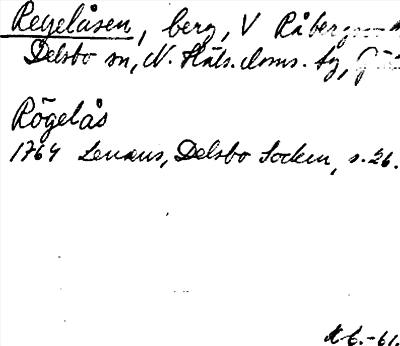 Regelåsen, berg, V Råberg
Delsbo sn, N. Häls. doms. tg,
Rögelås
1764 Lenæus, Delsbo Socken, s. 26.
-61.